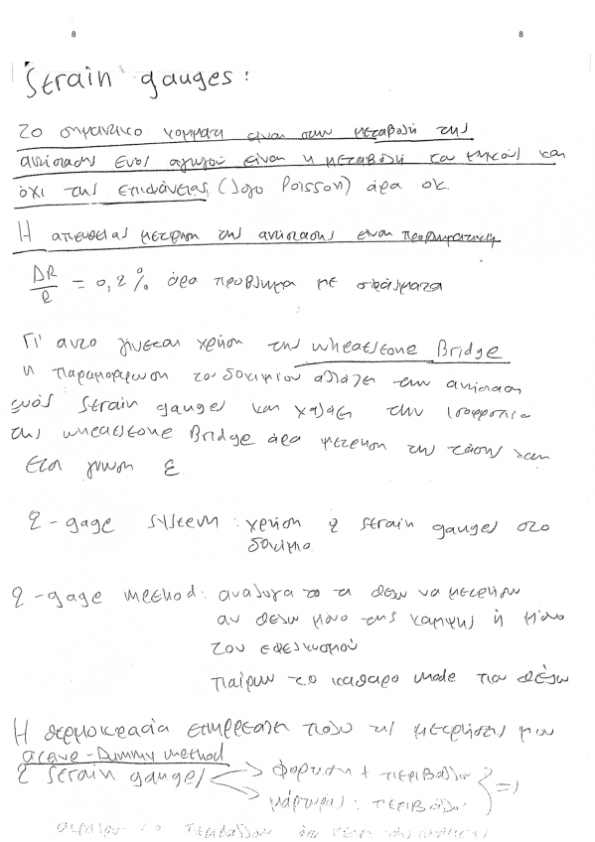 8 8
Strain gauges:
το σημαντικο κομματι ειναι στην μεταβολή της
αντίστασης ενος αγωγού είναι η μεταβολή του μηκούς και
όχι της επιφάνειας (λογο Poisson) άρα οκ.
Η απευθείας μετρηση της αντιστασης ειναι προβληματικη
ΔR/R = 0,2% άρα προβλημα με σφάλματα
Γι' αυτο γίνεται χρήση της Wheatstone Bridge
η παραμορφωση του δοκιμιου αλλάζει την αντισταση
ενός strain gauges και χαλάει την ισορροπια
της wheatstone Bridge άρα μετρηση της τάσης και
έτσι γνωση ε
2-gage system: χρήση 2 strain gauges στο
δοκιμιο
2-gage method: αναλογα το τι θελω να μετρησω
αν θελω μονο της καμψης ή μόνο
του εφελκυσμού
παίρνω το καθαρο mode που θέλω
Η θερμοκρασία επηρρεαζει πολυ τις μετρήσεις μου
active-Dummy method
2 strain gauges φορτιση + περιβαλλον
μάρτυρας: περιβάλλον =>